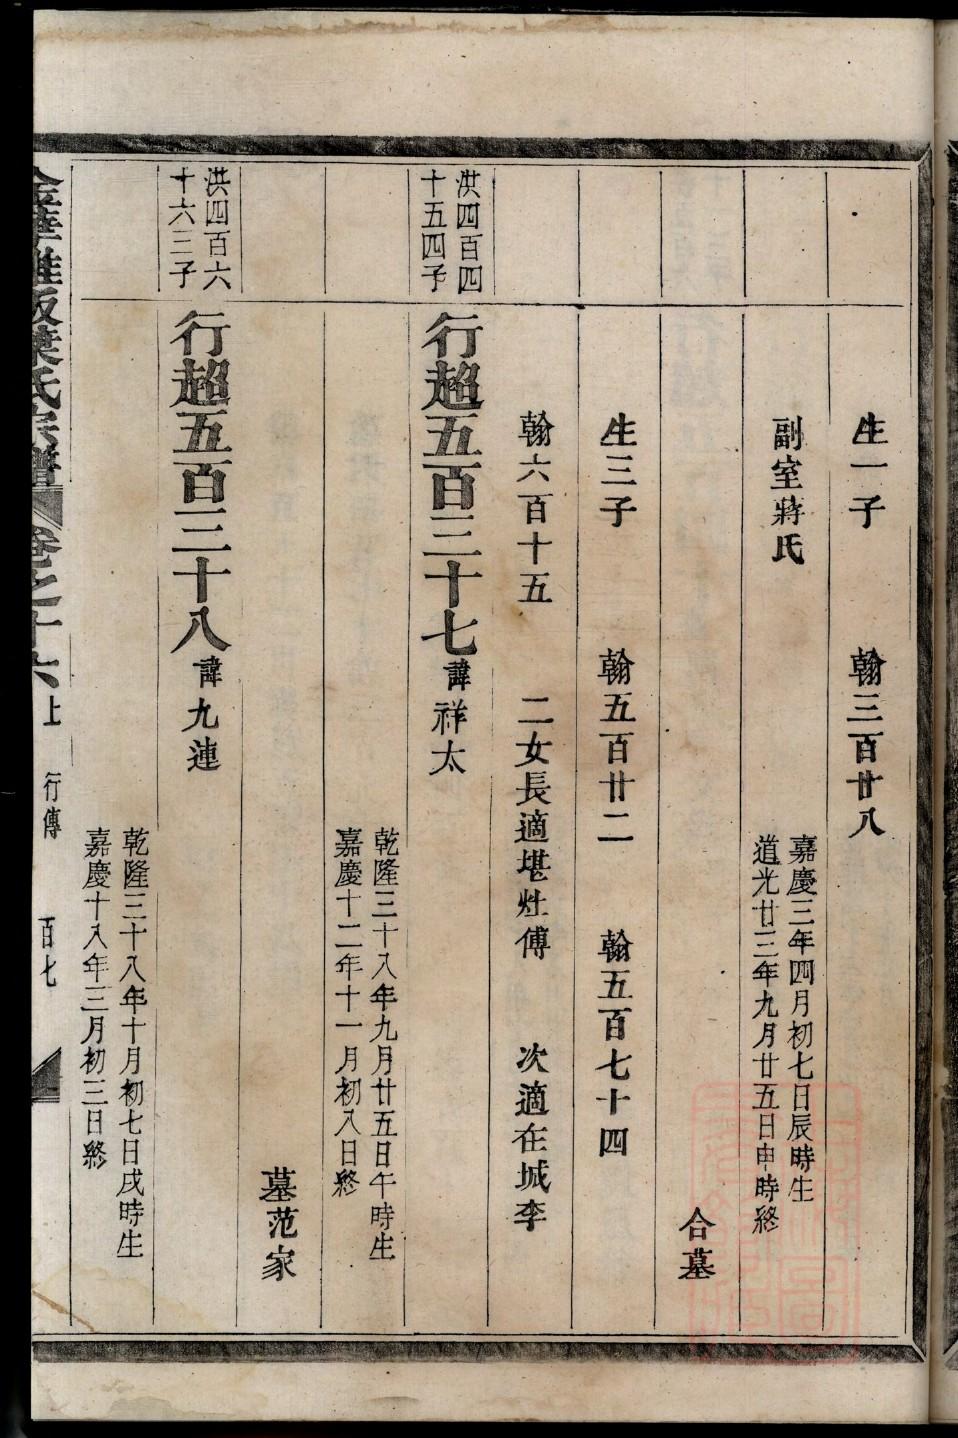 生一子　翰三百廿八
副室蔣氏
嘉慶三年四月初七日辰時生
道光廿三年九月廿五日申時終
合墓
生三子　翰五百廿二　翰五百七十四
翰六百十五　二女長適堪灶傅　次適在城李
洪四百四
十五四子
行超五百三十七諱祥太
乾隆三十八年九月廿五日午時生
嘉慶十二年十一月初八日終
墓范家
洪四百六
十六三子
行超五百三十八諱九連
乾隆三十八年十月初七日戌時生
嘉慶十八年三月初三日終
葉氏宗譜　卷之十六上　行傳　百七